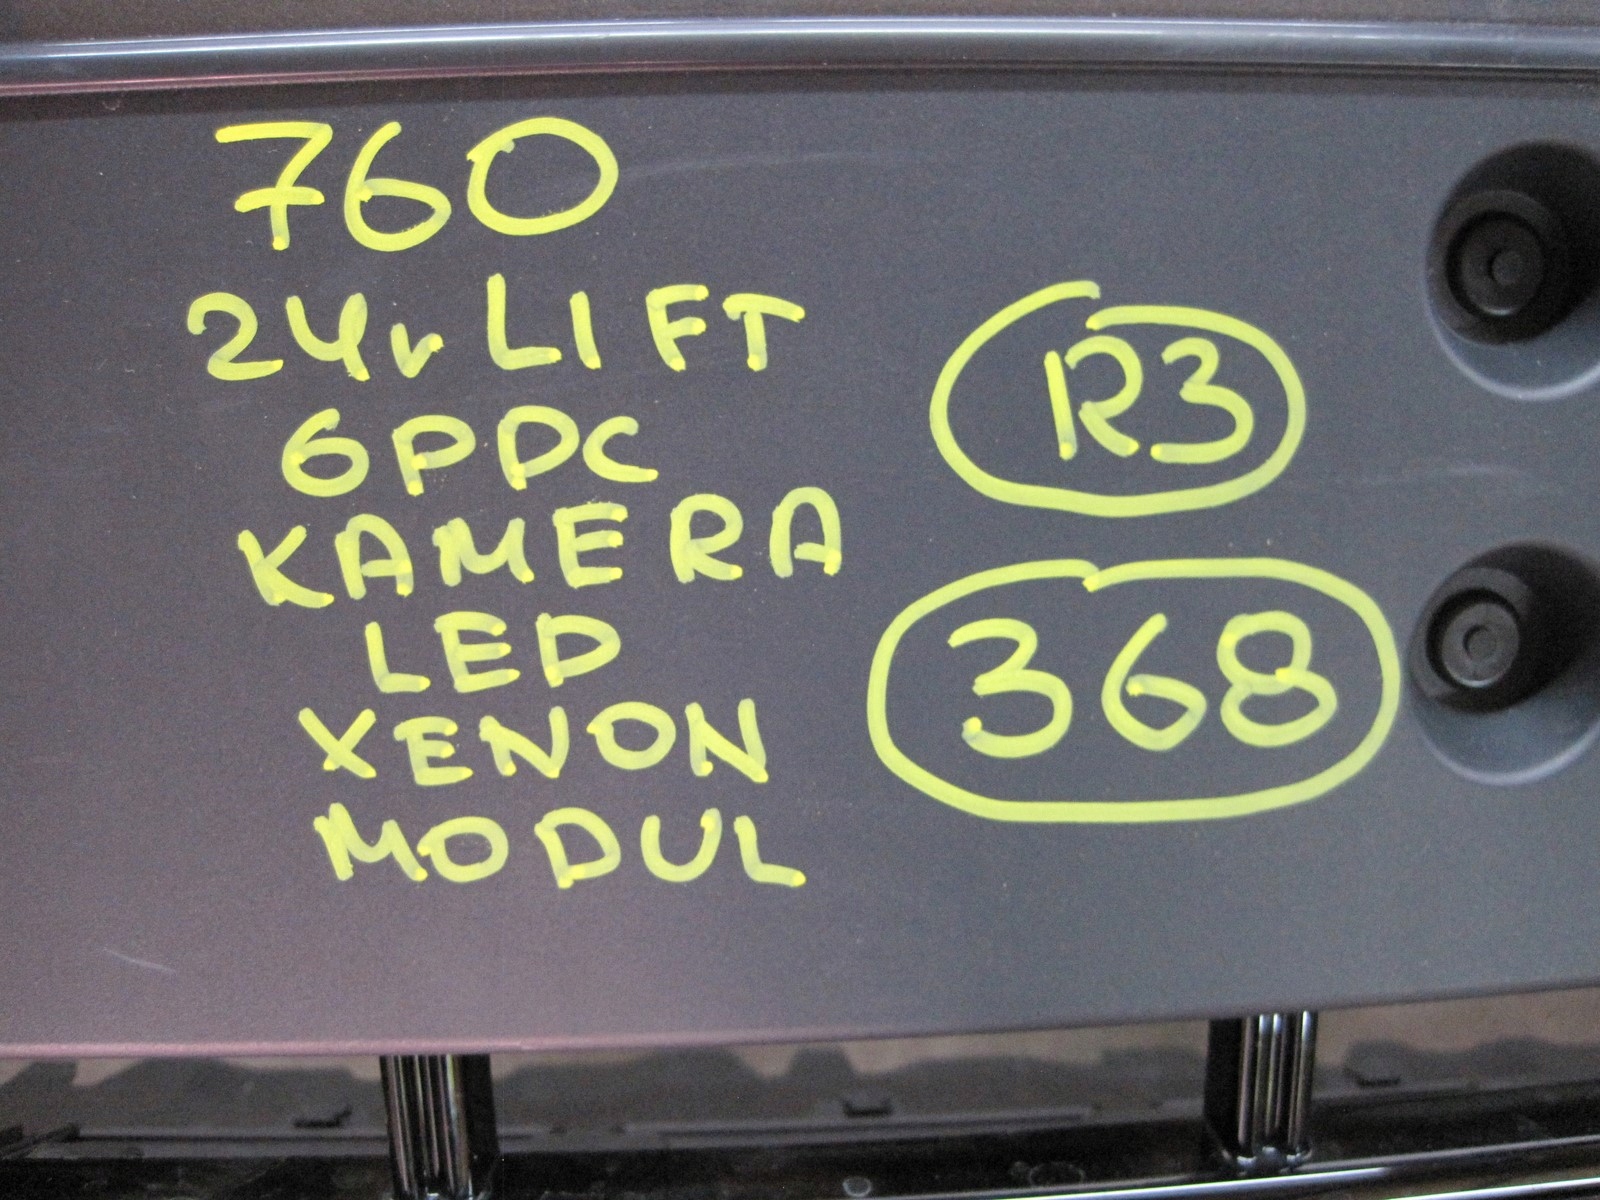 760
24r LIFT
6PDC
KAMERA
LED
XENON
MODUL
R3
368